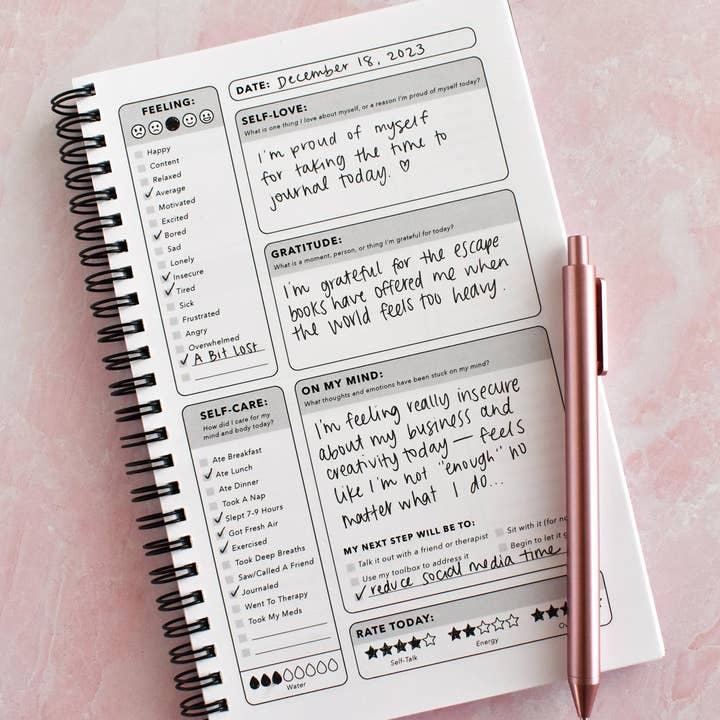 DATE: December 18, 2023
FEELING:
Happy
Content
Relaxed
Average
Motivated
Excited
Bored
Sad
Lonely
Insecure
Tired
Sick
Frustrated
Angry
Overwhelmed
A Bit Lost
SELF-LOVE:
What is one thing I love about myself, or a reason I'm proud of myself today?
I'm proud of myself
for taking the time to
journal today. ♡
GRATITUDE:
What is a moment, person, or thing I'm grateful for today?
I'm grateful for the escape
books have offered me when
the world feels too heavy.
SELF-CARE:
How did I care for my
mind and body today?
Ate Breakfast
Ate Lunch
Ate Dinner
Took A Nap
Slept 7-9 Hours
Got Fresh Air
Exercised
Took Deep Breaths
Saw/Called A Friend
Journaled
Went To Therapy
Took My Meds
Water
ON MY MIND:
What thoughts and emotions have been stuck on my mind?
I'm feeling really insecure
about my business and
creativity today — feels
like I'm not "enough" no
matter what I do...
MY NEXT STEP WILL BE TO:
Talk it out with a friend or therapist
Use my toolbox to address it
Sit with it (for
Begin to let it
reduce social media time
RATE TODAY:
Self-Talk
Energy